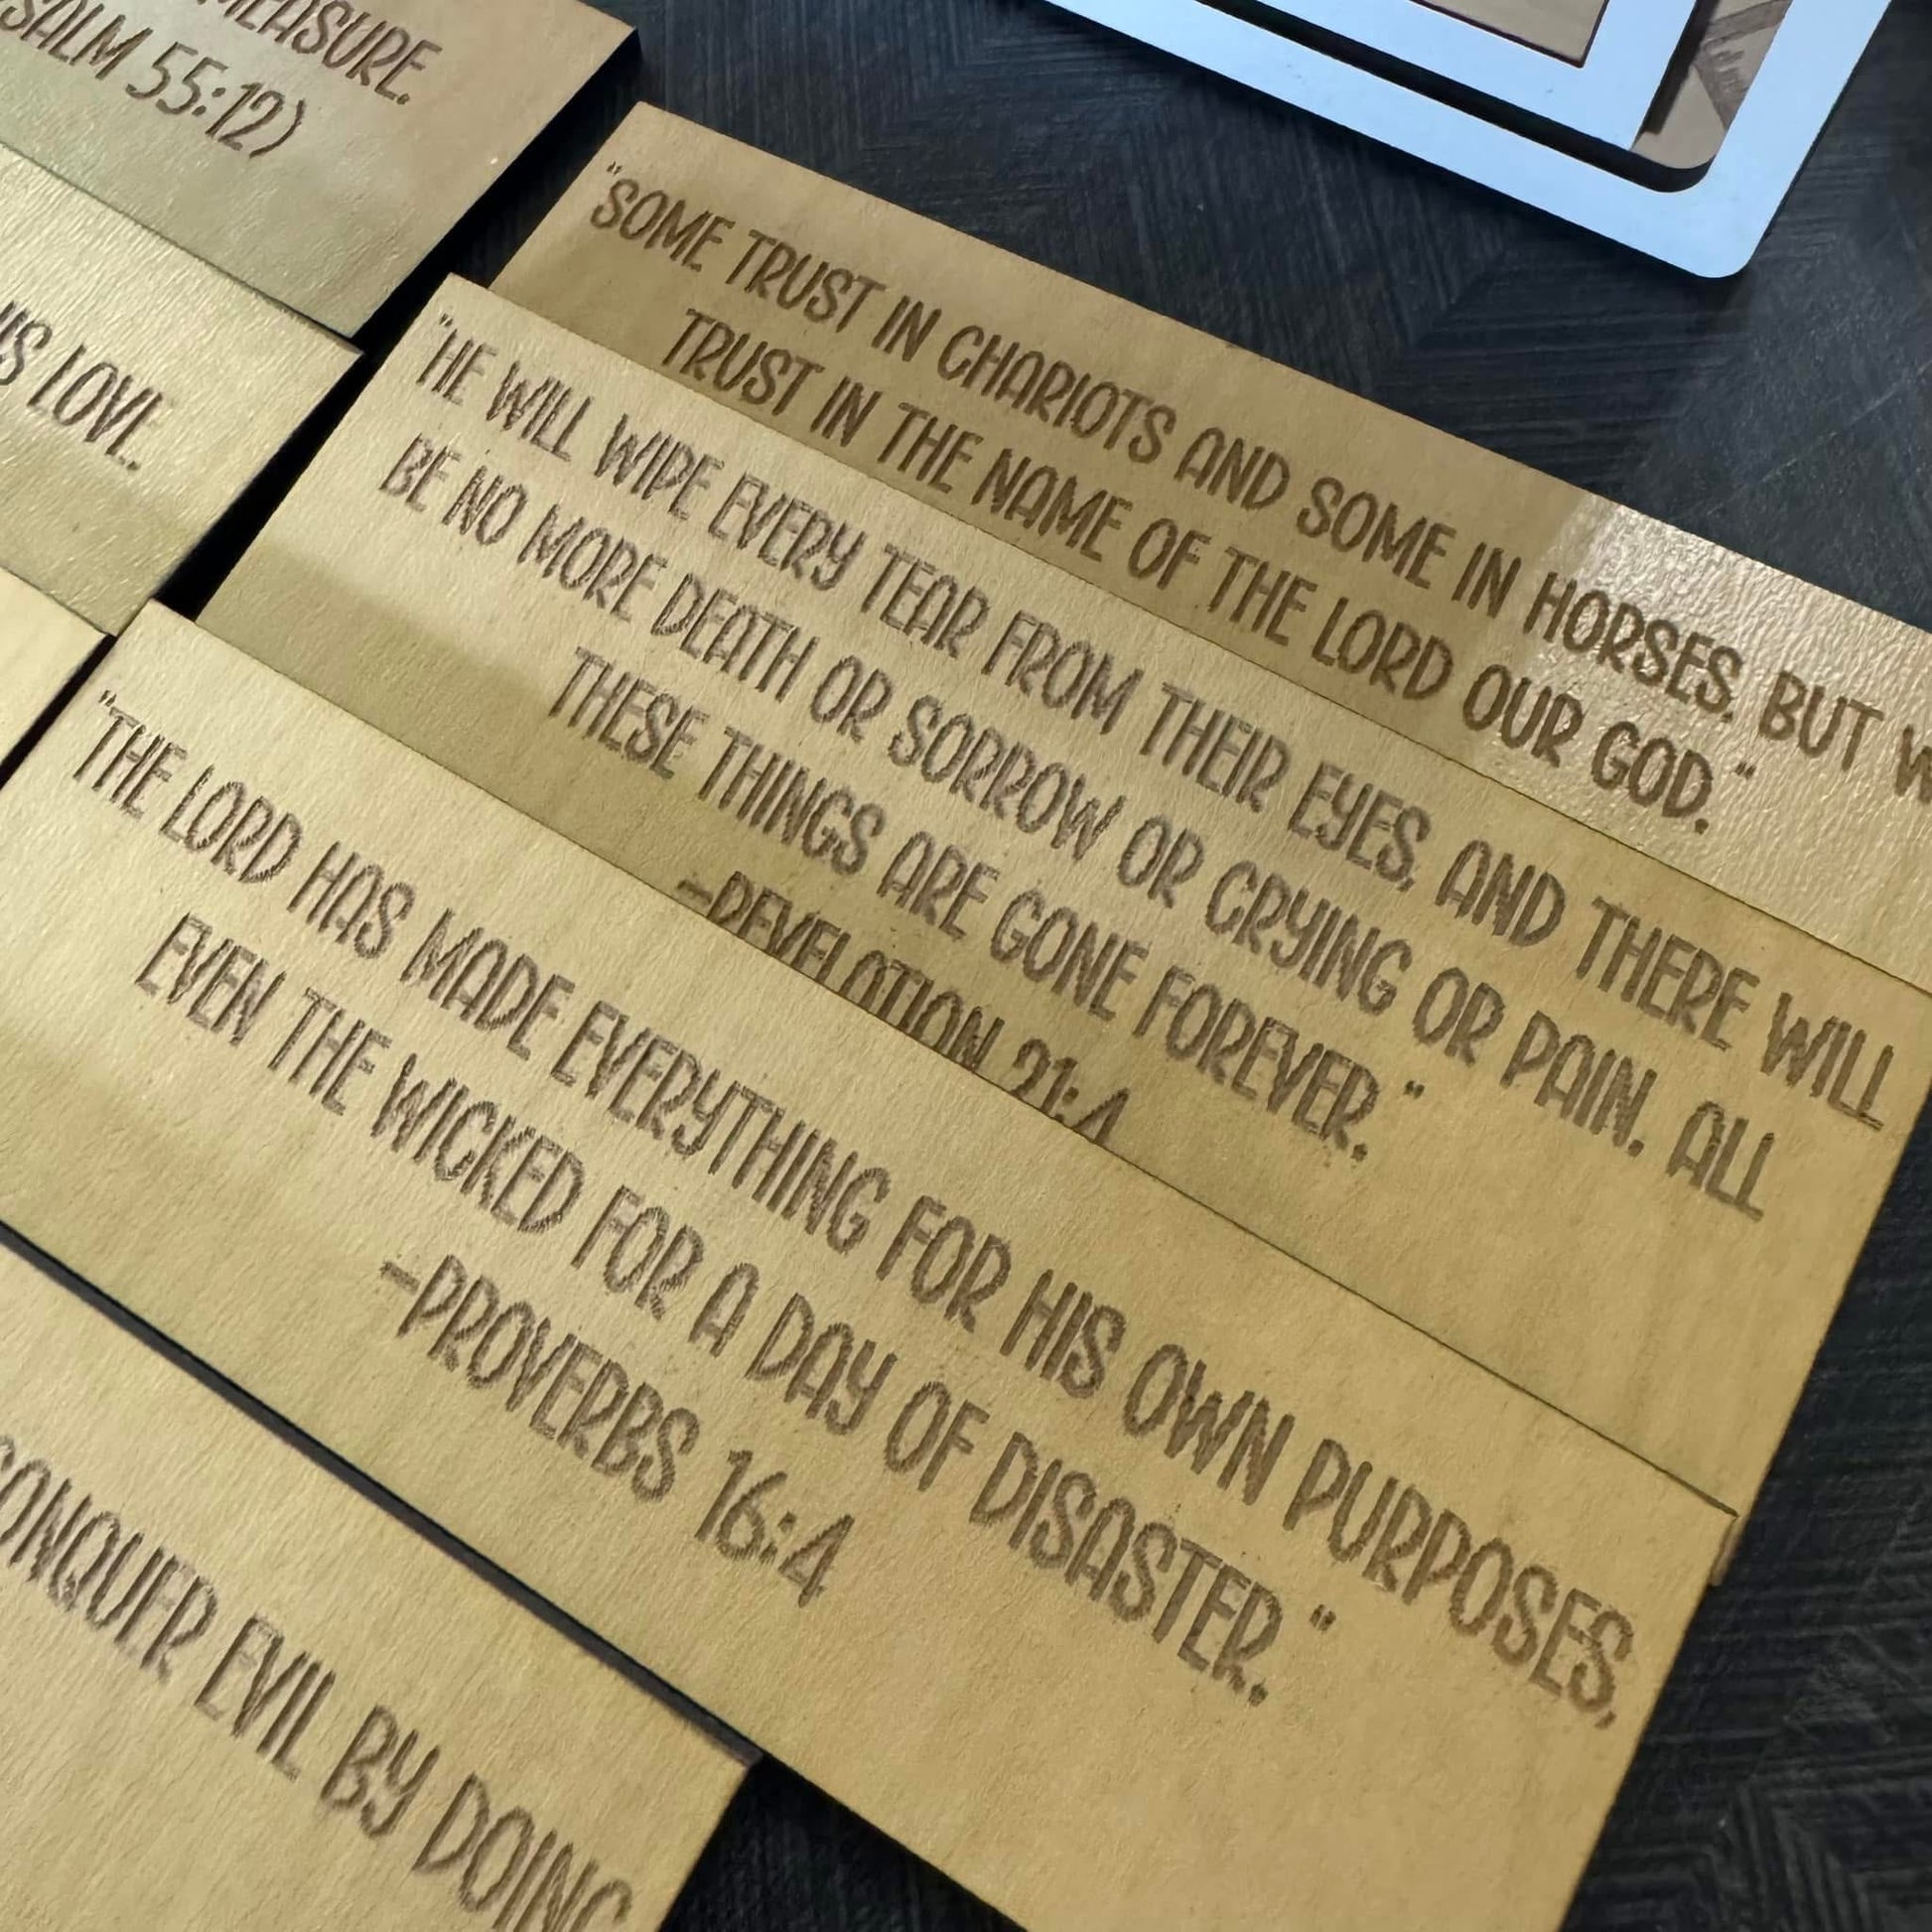 MEASURE.
SALM 55:12)
IS LOVE.
"SOME TRUST IN CHARIOTS AND SOME IN HORSES, BUT W
TRUST IN THE NAME OF THE LORD OUR GOD."
"HE WILL WIPE EVERY TEAR FROM THEIR EYES, AND THERE WILL
BE NO MORE DEATH OR SORROW OR CRYING OR PAIN. ALL
THESE THINGS ARE GONE FOREVER."
-REVELATION 21:4
"THE LORD HAS MADE EVERYTHING FOR HIS OWN PURPOSES,
EVEN THE WICKED FOR A DAY OF DISASTER."
-PROVERBS 16:4
CONQUER EVIL BY DOING